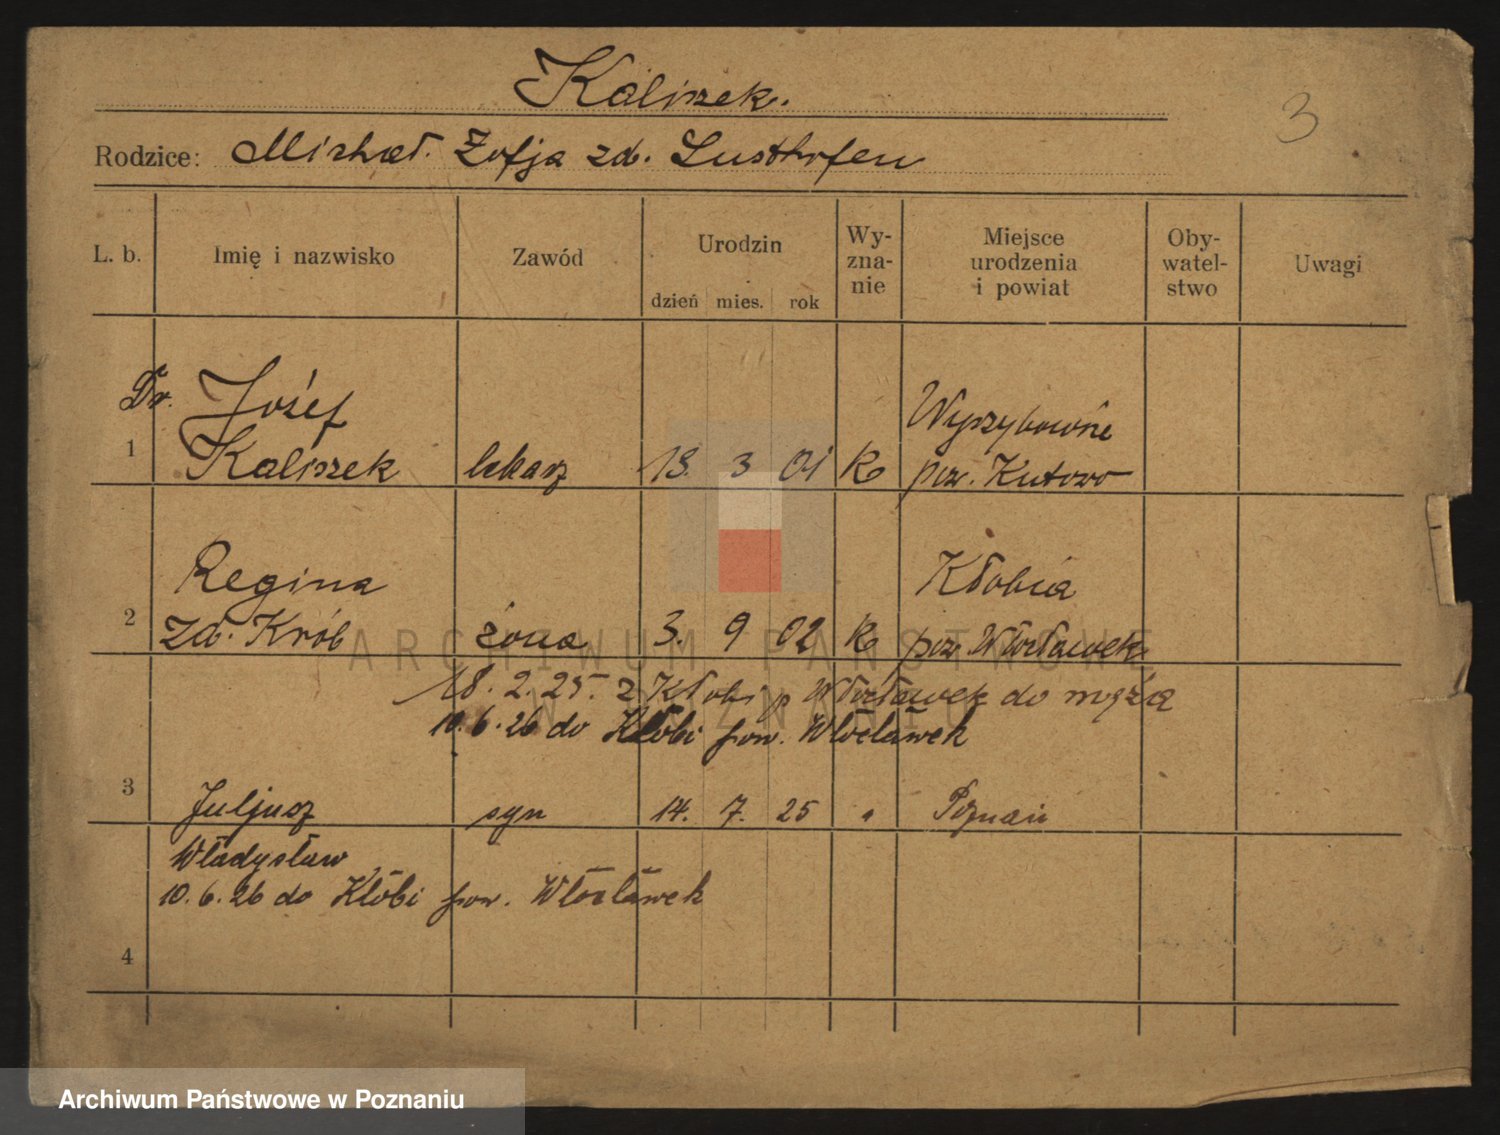 Kaliszek.
3
Rodzice: Michał. Zofja zd. Lusthofen
L. b.
Imię i nazwisko
Zawód
Urodzin
dzień mies. rok
Wy-
zna-
nie
Miejsce
urodzenia
i powiat
Oby-
watel-
stwo
Uwagi
Dr. Józef
1 Kaliszek lekarz 18. 3 01 K
Wyszybowne
pow. Kutowo
Regina
2 zd. Król żona 3. 9 02 K
Kłobia
pow. Włocławek
18. 2. 25. z Kłobi p Włocławek do męża
10. 6. 26 do Kłobi pow. Włocławek
3 Juljusz syn 14. 7. 25 " Poznań
Władysław
10. 6. 26 do Kłobi pow. Włocławek
4
ARCHIWUM PAŃSTWOWE
W POZNANIU
Archiwum Państwowe w Poznaniu